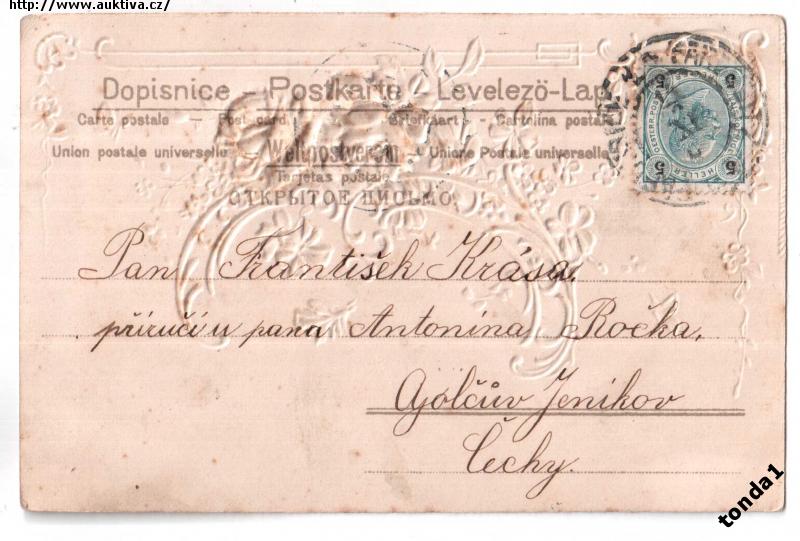 http://www.auktiva.cz/
Dopisnice - Postkarte - Levelezö-Lap
Carte postale - Post card - Briefkaart - Cartolina postale
Union postale universelle - Weltpostverein - Unione Postale universelle
Tarjetas postale
ОТКРЫТОЕ ПИСЬМО.
5 5
5 5
HELLER
Pan František Krása,
příručí u pana Antonína Ročka,
Golčův Jeníkov
Čechy.
tonda1